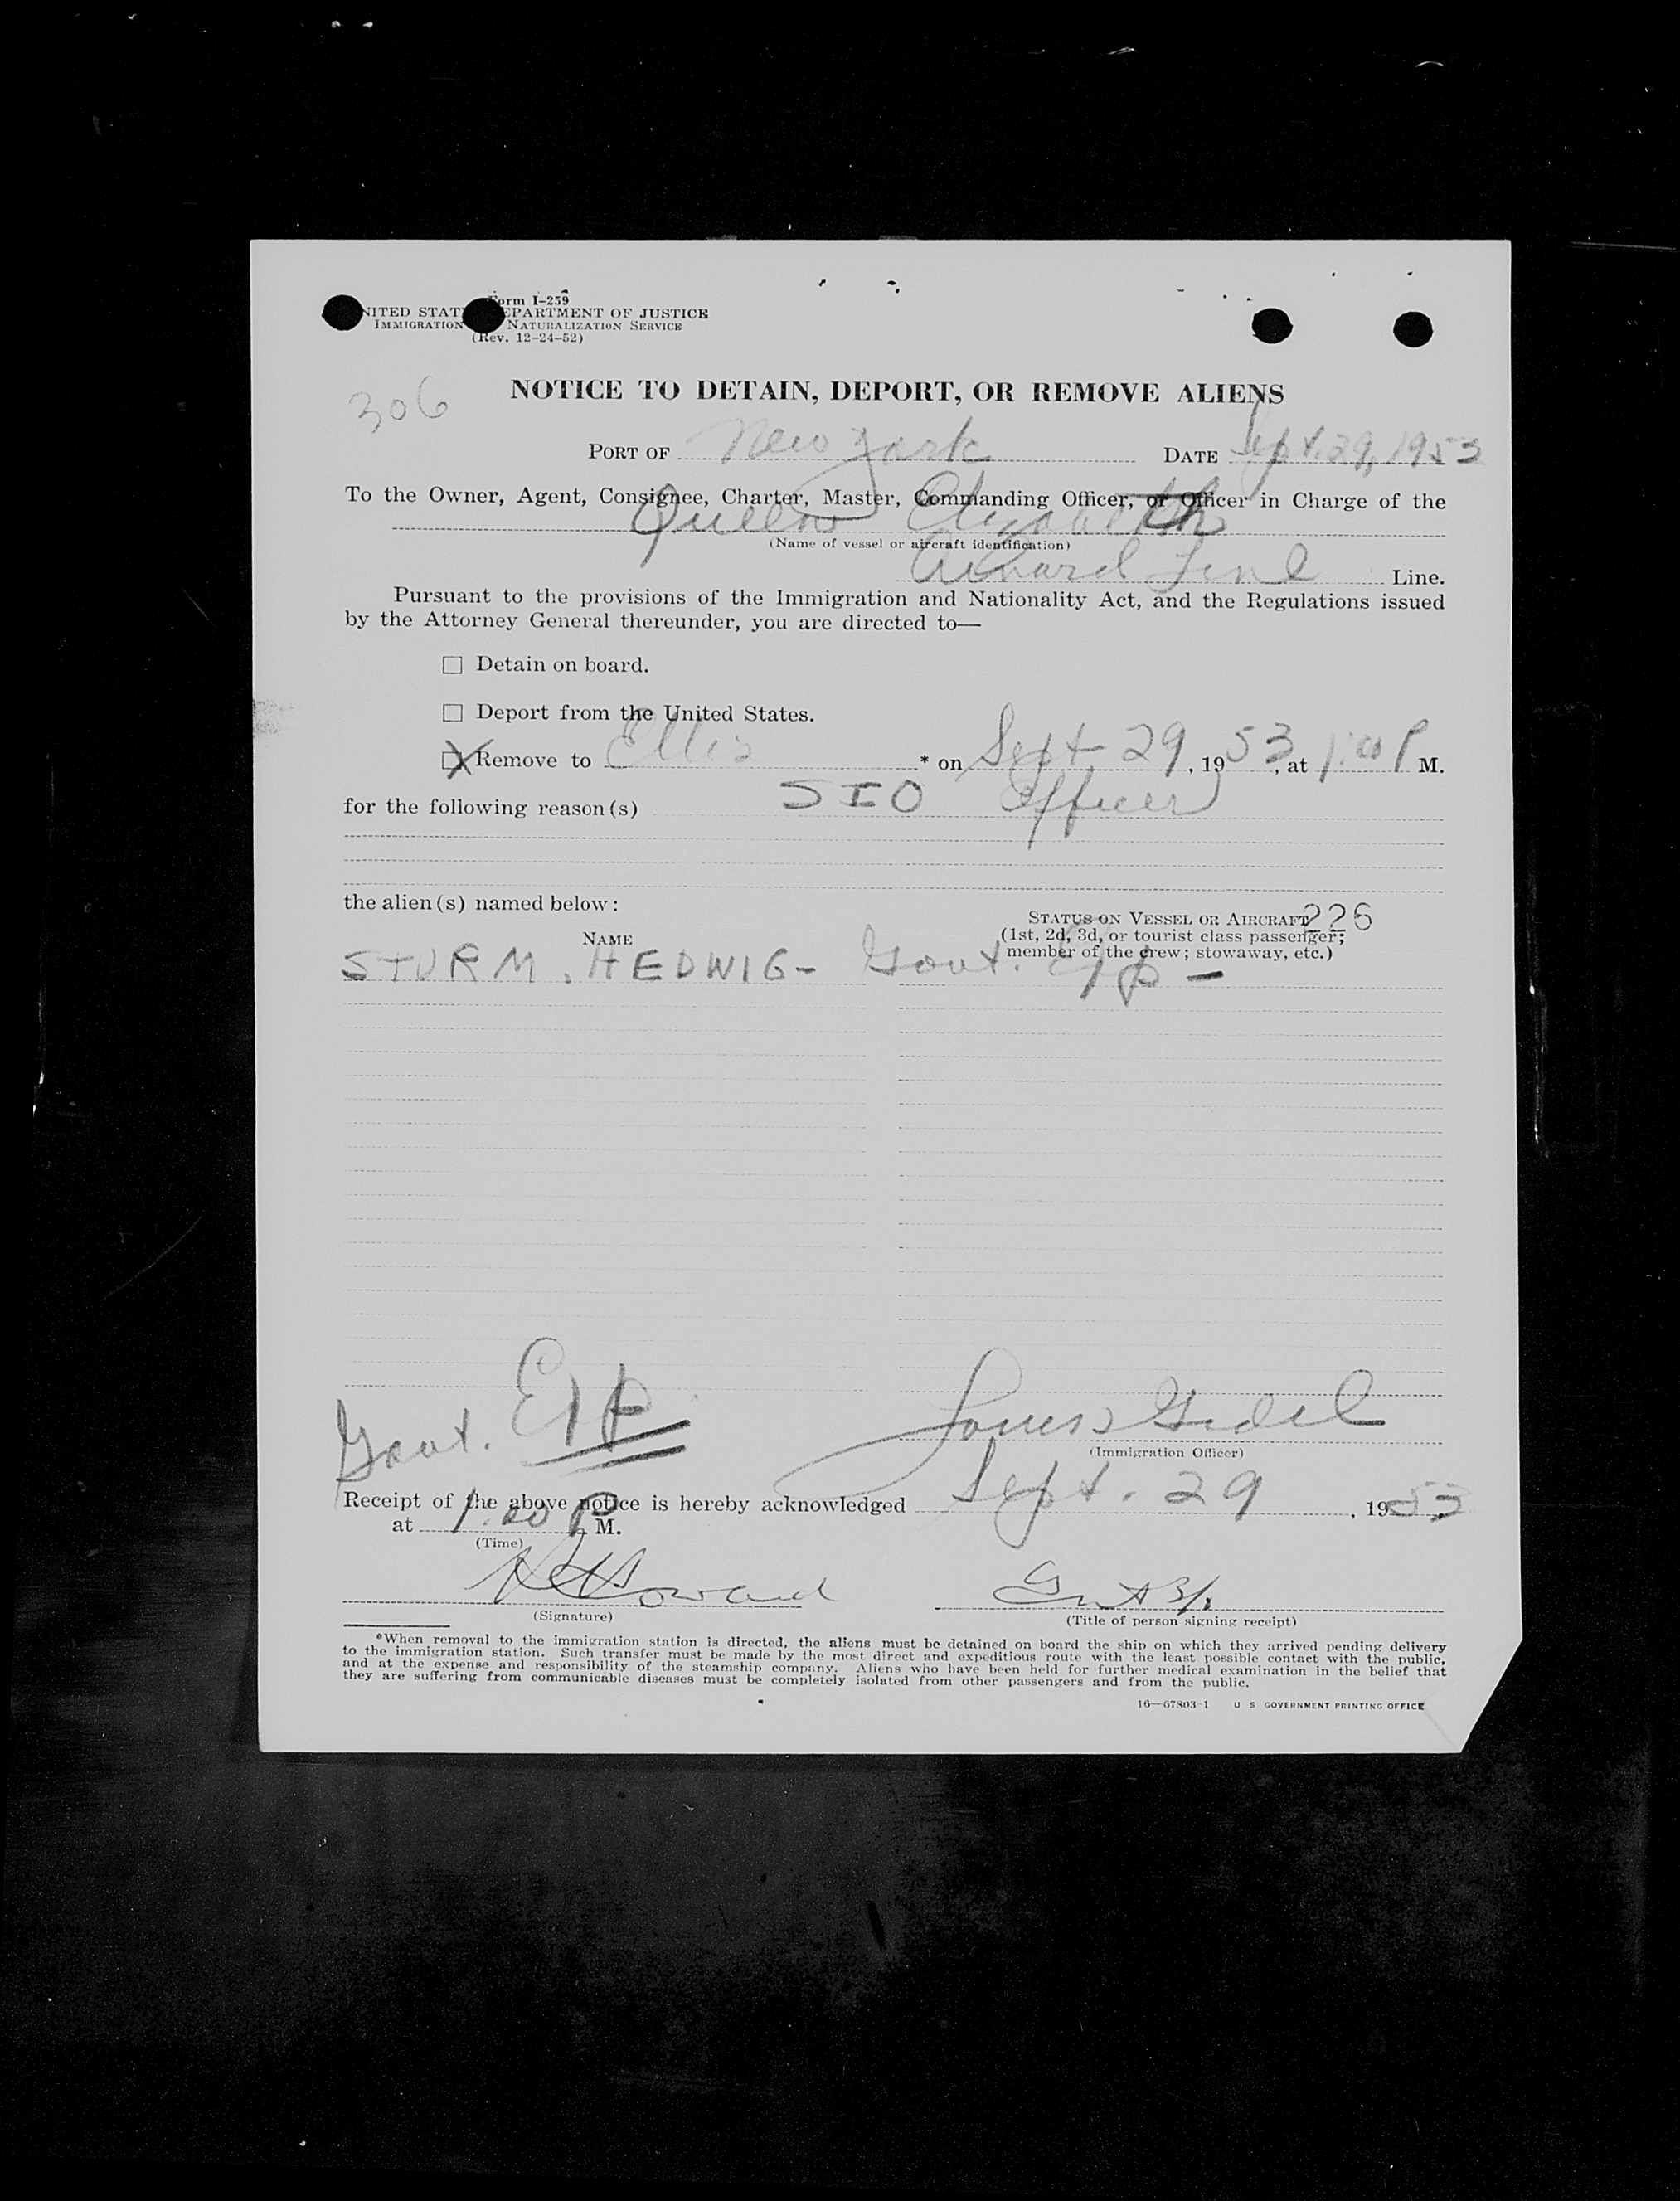 Form I-259
UNITED STATES DEPARTMENT OF JUSTICE
IMMIGRATION NATURALIZATION SERVICE
(Rev. 12-24-52)
306
NOTICE TO DETAIN, DEPORT, OR REMOVE ALIENS
PORT OF New York DATE Sept. 29, 1953
To the Owner, Agent, Consignee, Charter, Master, Commanding Officer, or Officer in Charge of the
Queen Elizabeth
(Name of vessel or aircraft identification)
Cunard Line Line.
Pursuant to the provisions of the Immigration and Nationality Act, and the Regulations issued
by the Attorney General thereunder, you are directed to—
☐ Detain on board.
☐ Deport from the United States.
☒ Remove to Ellis * on Sept 29, 1953, at 1:00 P M.
for the following reason(s) SIO Officer
the alien(s) named below:
NAME
STATUS ON VESSEL OR AIRCRAFT 226
(1st, 2d, 3d, or tourist class passenger;
member of the crew; stowaway, etc.)
STURM, HEDWIG - Govt. Exp -
Govt. Exp
Louis
(Immigration Officer)
Receipt of the above notice is hereby acknowledged Sept. 29, 1953
at 1:00 P M.
(Time)
Howard
(Signature)
(Title of person signing receipt)
*When removal to the immigration station is directed, the aliens must be detained on board the ship on which they arrived pending delivery
to the immigration station. Such transfer must be made by the most direct and expeditious route with the least possible contact with the public,
and at the expense and responsibility of the steamship company. Aliens who have been held for further medical examination in the belief that
they are suffering from communicable diseases must be completely isolated from other passengers and from the public.
16—67803-1 U S GOVERNMENT PRINTING OFFICE